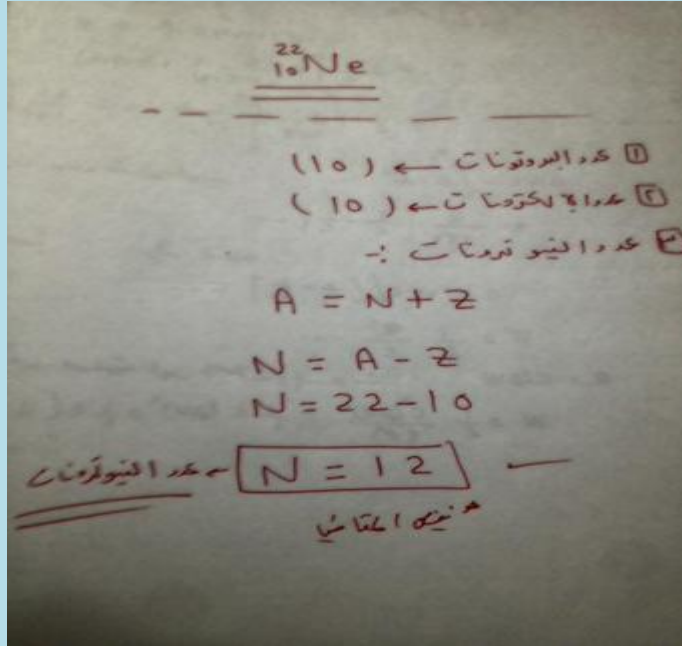 ²²₁₀Ne
١ عدد البروتونات ← (10)
٢ عدد الإلكترونات ← (10)
٣ عدد النيوترونات :-
A = N + Z
N = A - Z
N = 22 - 10
N = 12 عدد النيوترونات